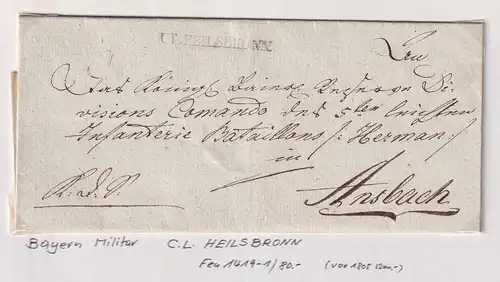 C.L. HEILSBRONN
An
Das Königl Baier Reserve Di-
visions Comando des 5ten leichten
Infanterie Bataillons /: Herman :/
in
Ansbach
Bayern Militär C.L. HEILSBRONN
Feu 1419-1/80.- (vor 1805 1200.-)